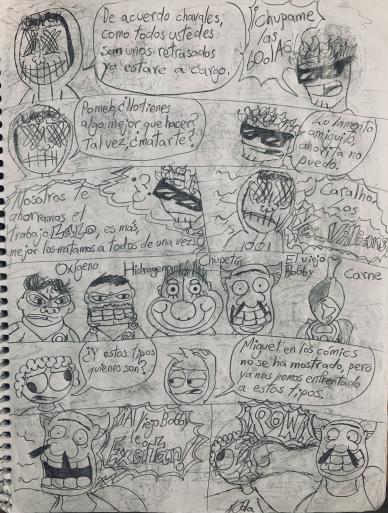 De acuerdo chavales,
como todos ustedes
son unos retrasados
yo estare a cargo.
¡¡Chupame
las
bolas
Pomeb, ¿No tienes
algo mejor que hacer?
Tal vez, ¿matarte?
Lo lamento
amiguito,
ahorita no
puedo.
Nosotros te
ahorramos el
trabajo es más,
mejor los matamos a todos de una vez
¿?
Caralho
Los
Oxígeno
Hidrogeno
Chupetín
El viejo
Bobby
Carne
¿Y estos tipos
quienes son?
Miguel, en los comics
no se ha mostrado, pero
ya nos hemos enfrentado
a estos tipos.
¡Al viejo Bobby
le
Excitan!
POW!